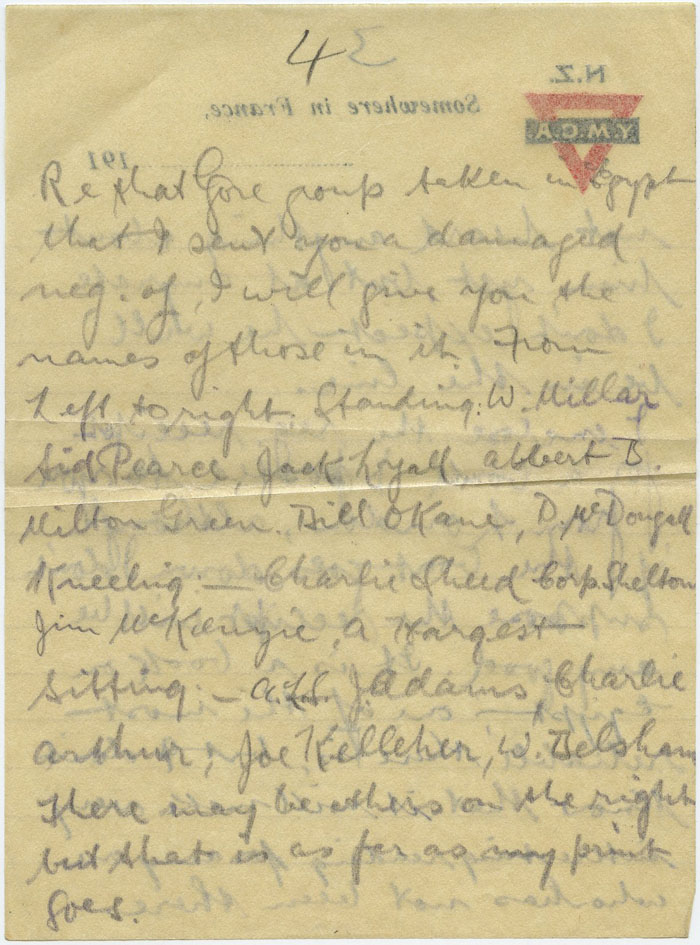 4
N.Z.
Y.M.C.A
Somewhere in France,
191
Re that Gore group taken in Egypt
that I sent you a damaged
neg. of, I will give you the
names of those in it From
Left to right. Standing: W. Millar
Sid Pearce, Jack Lyall Abbert B.
Milton Green. Bill OKane, D. McDougall
Kneeling: — Charlie Sheed Corp. Shelton
Jim McKenzie, A Hargest
Sitting: — J. Adams, Charlie
Arthur, Joe Kelleher, W. Belsham
There may be others on the right
but that is as far as my print
goes.